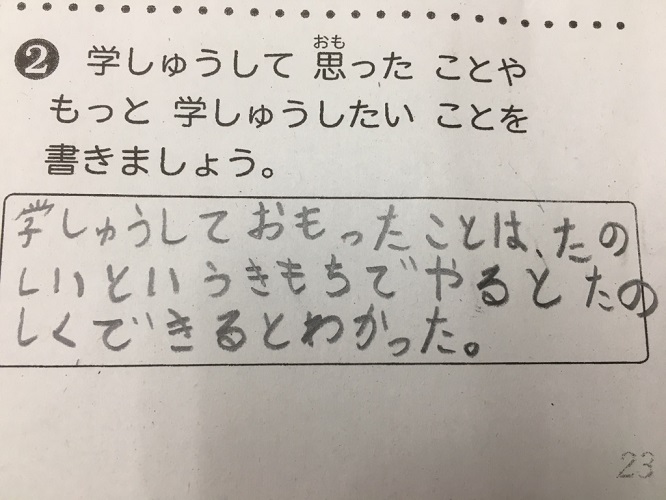 ② 学しゅうして 思った ことや
もっと 学しゅうしたい ことを
書きましょう。
学しゅうしておもったことは、たの
しいというきもちでやるとたの
しくできるとわかった。
23